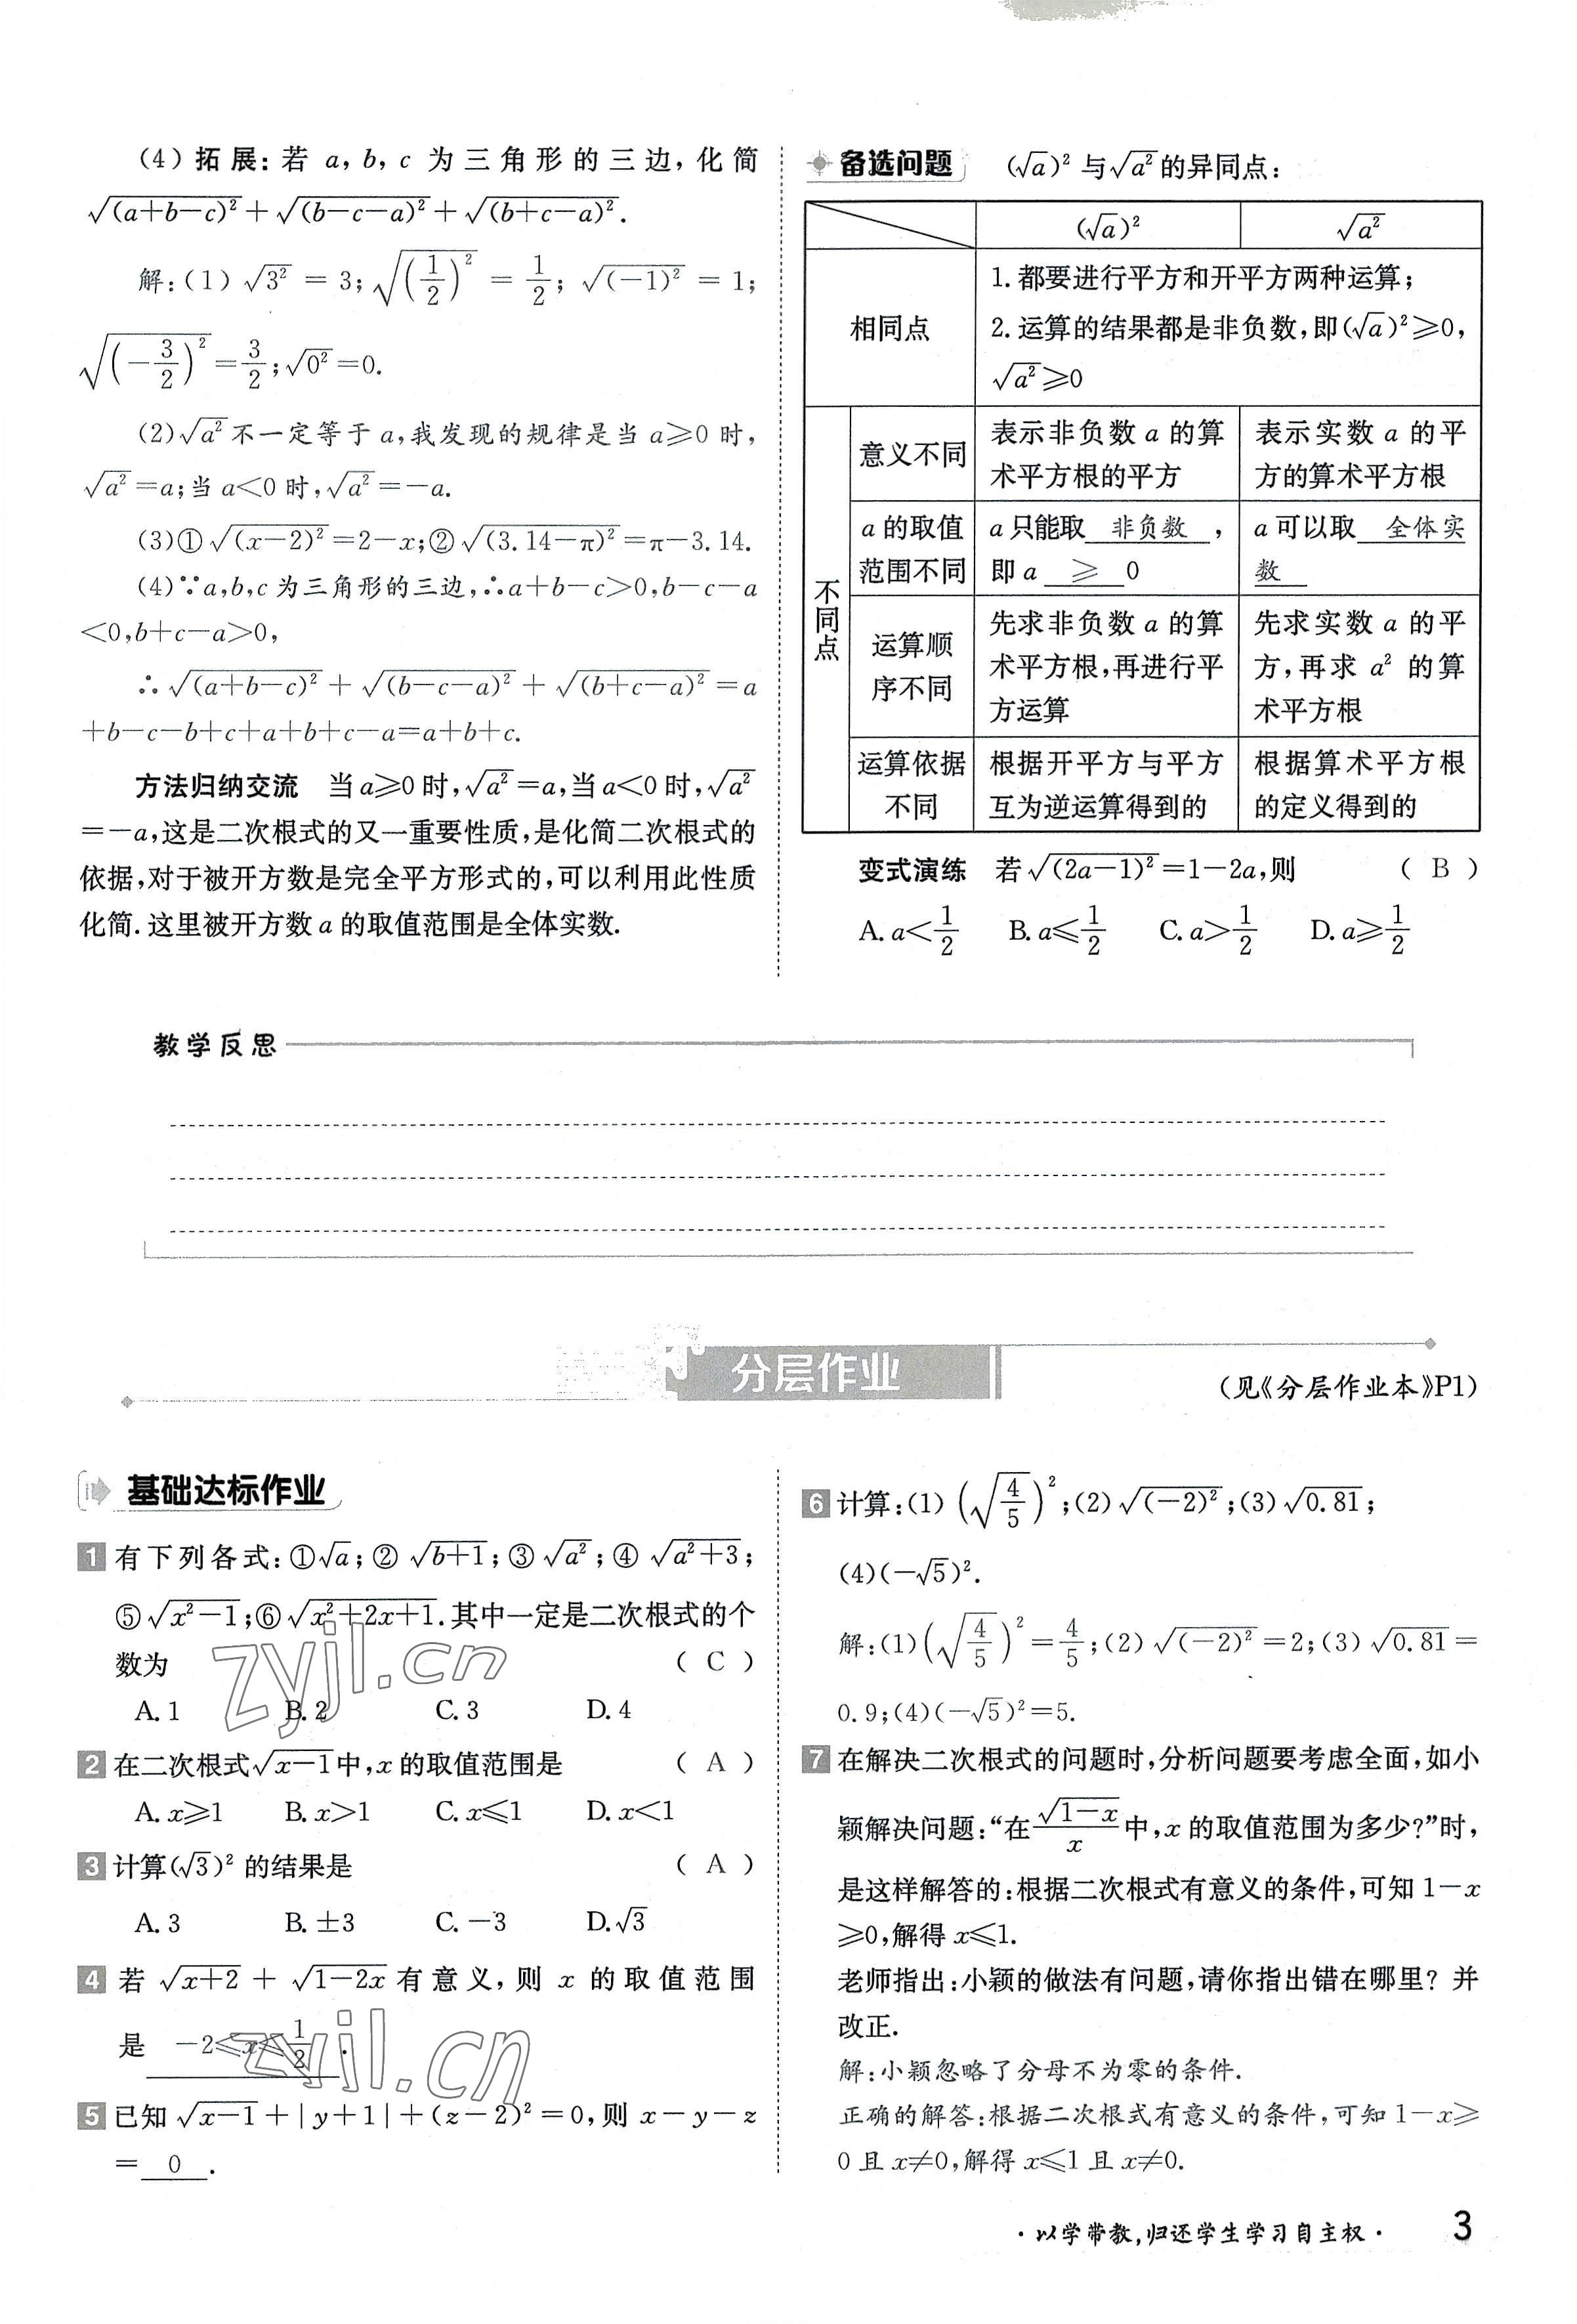 (4) 拓展:若 a, b, c 为三角形的三边,化简
√(a+b-c)² + √(b-c-a)² + √(b+c-a)².
解:(1) √3² = 3; √(1/2)² = 1/2; √(-1)² = 1;
√(-3/2)² = 3/2; √0² = 0.
(2) √a² 不一定等于 a,我发现的规律是当 a≥0 时,
√a² = a;当 a<0 时, √a² = -a.
(3)① √(x-2)² = 2-x;② √(3.14-π)² = π-3.14.
(4)∵a,b,c 为三角形的三边,∴a+b-c>0,b-c-a
<0,b+c-a>0,
∴ √(a+b-c)² + √(b-c-a)² + √(b+c-a)² = a
+b-c-b+c+a+b+c-a=a+b+c.
方法归纳交流 当 a≥0 时, √a² = a,当 a<0 时, √a²
=-a,这是二次根式的又一重要性质,是化简二次根式的
依据,对于被开方数是完全平方形式的,可以利用此性质
化简.这里被开方数 a 的取值范围是全体实数.
备选问题 (√a)² 与 √a² 的异同点:
(√a)² √a²
相同点
1.都要进行平方和开平方两种运算;
2.运算的结果都是非负数,即(√a)²≥0,
√a²≥0
不同点
意义不同
表示非负数 a 的算
术平方根的平方
表示实数 a 的平
方的算术平方根
a 的取值
范围不同
a 只能取 非负数 ,
即 a ≥ 0
a 可以取 全体实
数
运算顺
序不同
先求非负数 a 的算
术平方根,再进行平
方运算
先求实数 a 的平
方,再求 a² 的算
术平方根
运算依据
不同
根据开平方与平方
互为逆运算得到的
根据算术平方根
的定义得到的
变式演练 若 √(2a-1)² = 1-2a,则 ( B )
A. a<1/2 B. a≤1/2 C. a>1/2 D. a≥1/2
教学反思
分层作业
(见《分层作业本》P1)
基础达标作业
1 有下列各式:①√a;② √(b+1);③ √a²;④ √(a²+3);
⑤ √(x²-1);⑥ √(x²+2x+1).其中一定是二次根式的个
数为 ( C )
A. 1 B. 2 C. 3 D. 4
2 在二次根式 √(x-1) 中,x 的取值范围是 ( A )
A. x≥1 B. x>1 C. x≤1 D. x<1
3 计算(√3)² 的结果是 ( A )
A. 3 B. ±3 C. -3 D. √3
4 若 √(x+2) + √(1-2x) 有意义,则 x 的取值范围
是 -2≤x≤1/2 .
5 已知 √(x-1) + |y+1| + (z-2)² = 0,则 x-y-z
= 0 .
6 计算:(1) (√(4/5))²;(2) √(-2)²;(3) √0.81;
(4)(-√5)².
解:(1) (√(4/5))² = 4/5;(2) √(-2)² = 2;(3) √0.81 =
0.9;(4)(-√5)²=5.
7 在解决二次根式的问题时,分析问题要考虑全面,如小
颖解决问题:“在 √(1-x)/x 中,x 的取值范围为多少?”时,
是这样解答的:根据二次根式有意义的条件,可知 1-x
≥0,解得 x≤1.
老师指出:小颖的做法有问题,请你指出错在哪里?并
改正.
解:小颖忽略了分母不为零的条件.
正确的解答:根据二次根式有意义的条件,可知 1-x≥
0 且 x≠0,解得 x≤1 且 x≠0.
zyjl.cn
zyjl.cn
·以学带教,归还学生学习自主权·
3